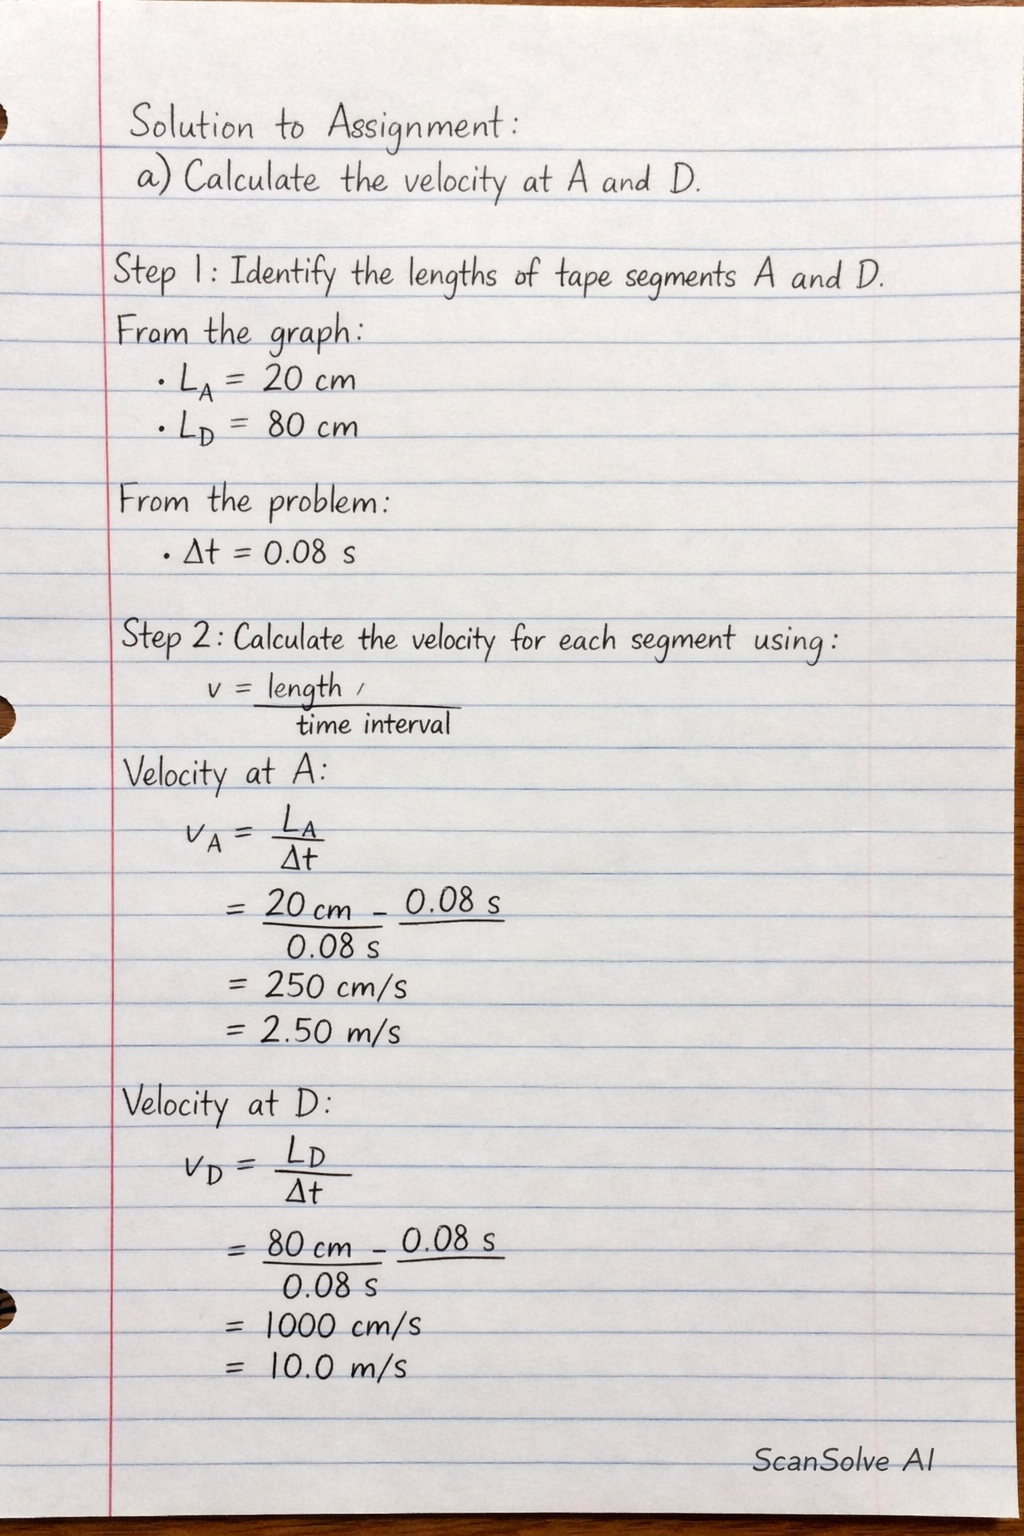 Solution to Assignment:
a) Calculate the velocity at A and D.
Step 1: Identify the lengths of tape segments A and D.
From the graph:
• L_A = 20 cm
• L_D = 80 cm
From the problem:
• Δt = 0.08 s
Step 2: Calculate the velocity for each segment using:
v = length /
time interval
Velocity at A:
v_A = L_A
Δt
= 20 cm - 0.08 s
0.08 s
= 250 cm/s
= 2.50 m/s
Velocity at D:
v_D = L_D
Δt
= 80 cm - 0.08 s
0.08 s
= 1000 cm/s
= 10.0 m/s
ScanSolve AI